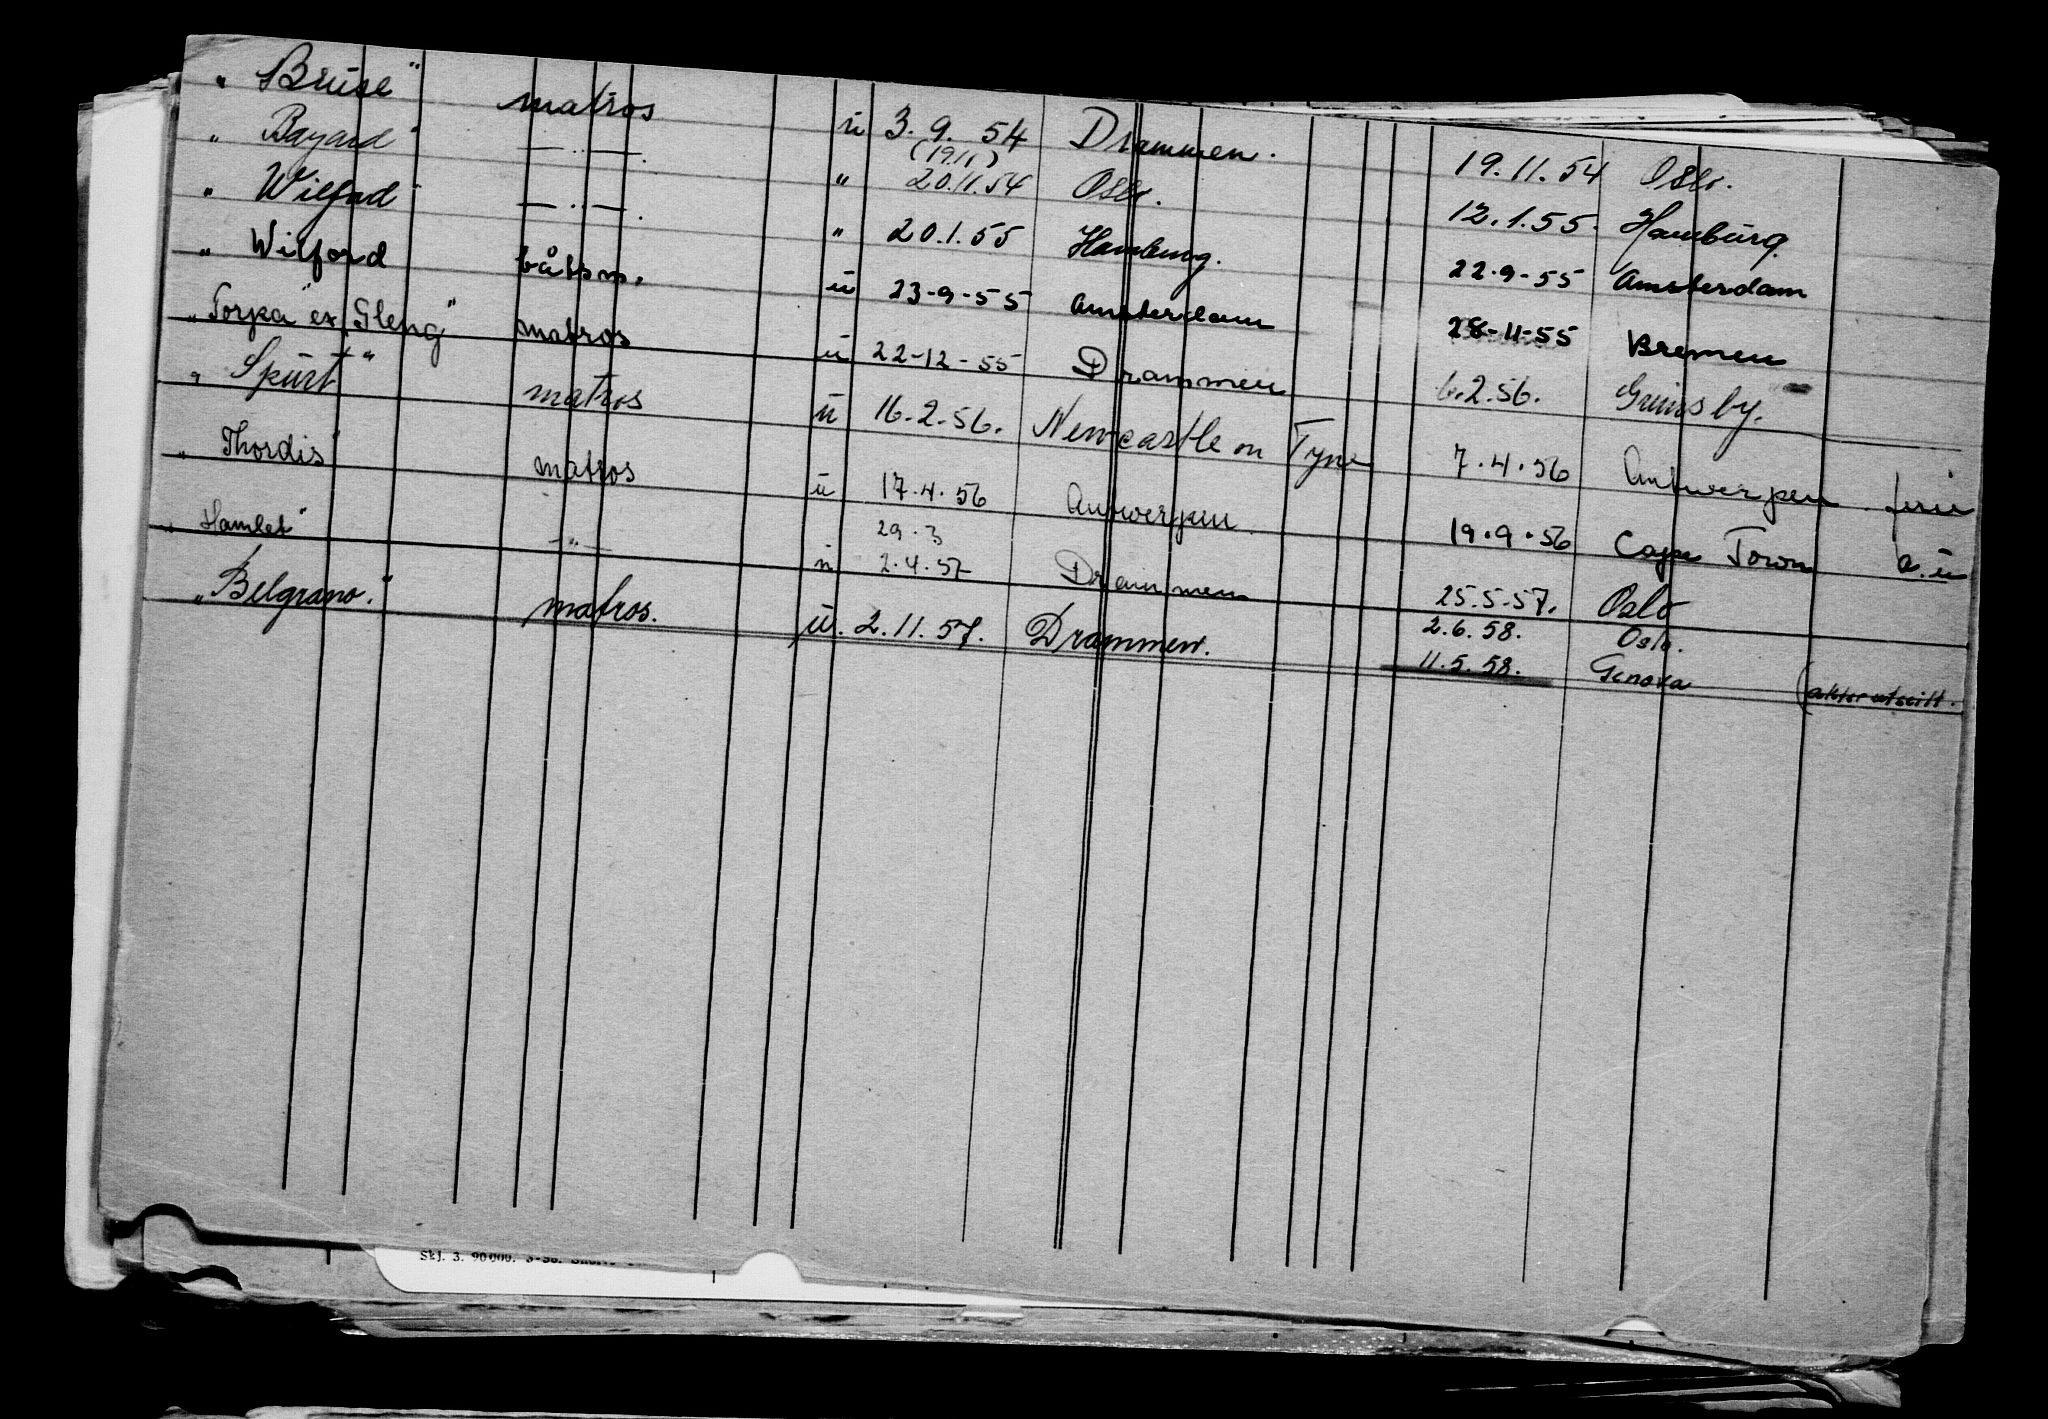 " Bruse " matros u 3. 9. 54 Drammen. 19. 11. 54 Oslo.
" Bayard " — " — . " (19/11) 20.11.54 Oslo. 12. 1. 55. Hamburg.
" Wilford " — " — . " 20.1.55 Hamburg. 22-9-55 Amsterdam
" Wilford båtsm. u 23-9-55 Amsterdam 28-11-55 Bremen
" Torfa " ex " Gleng " matros u 22-12-55 Drammen 6.2.56. Grimsby.
" Spurt " matros u 16-2-56. Newcastle on Tyne 7.4.56 Antwerpen
" Thordis " matros u 17.4.56 Antwerpen 19.9.56 Cape Town a.u
" Hamlet " — " — u 29.3 2.4.57 Drammen 25.5.57. Oslo
" Belgrano. " matros. u. 2.11.57. Drammen. 2.6.58. Oslo.
11.5.58. Genova
Skj. 3. 90.000. 3-50.